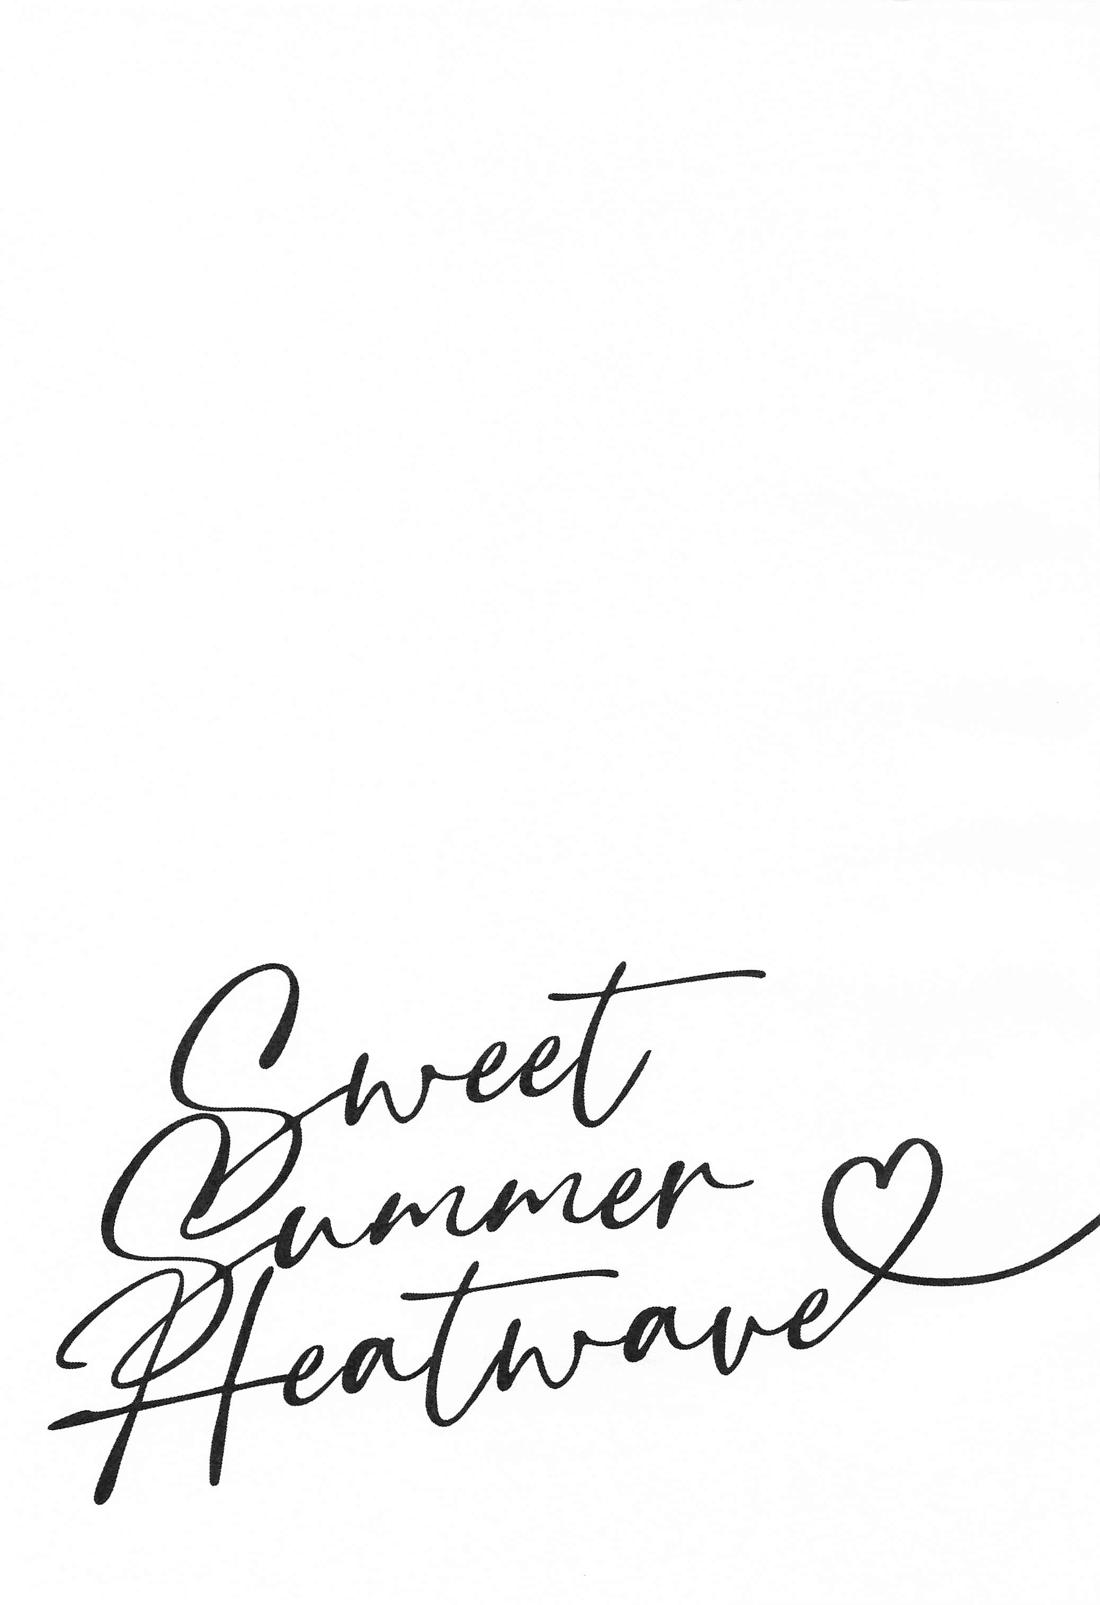 Sweet
Summer
Heatwave